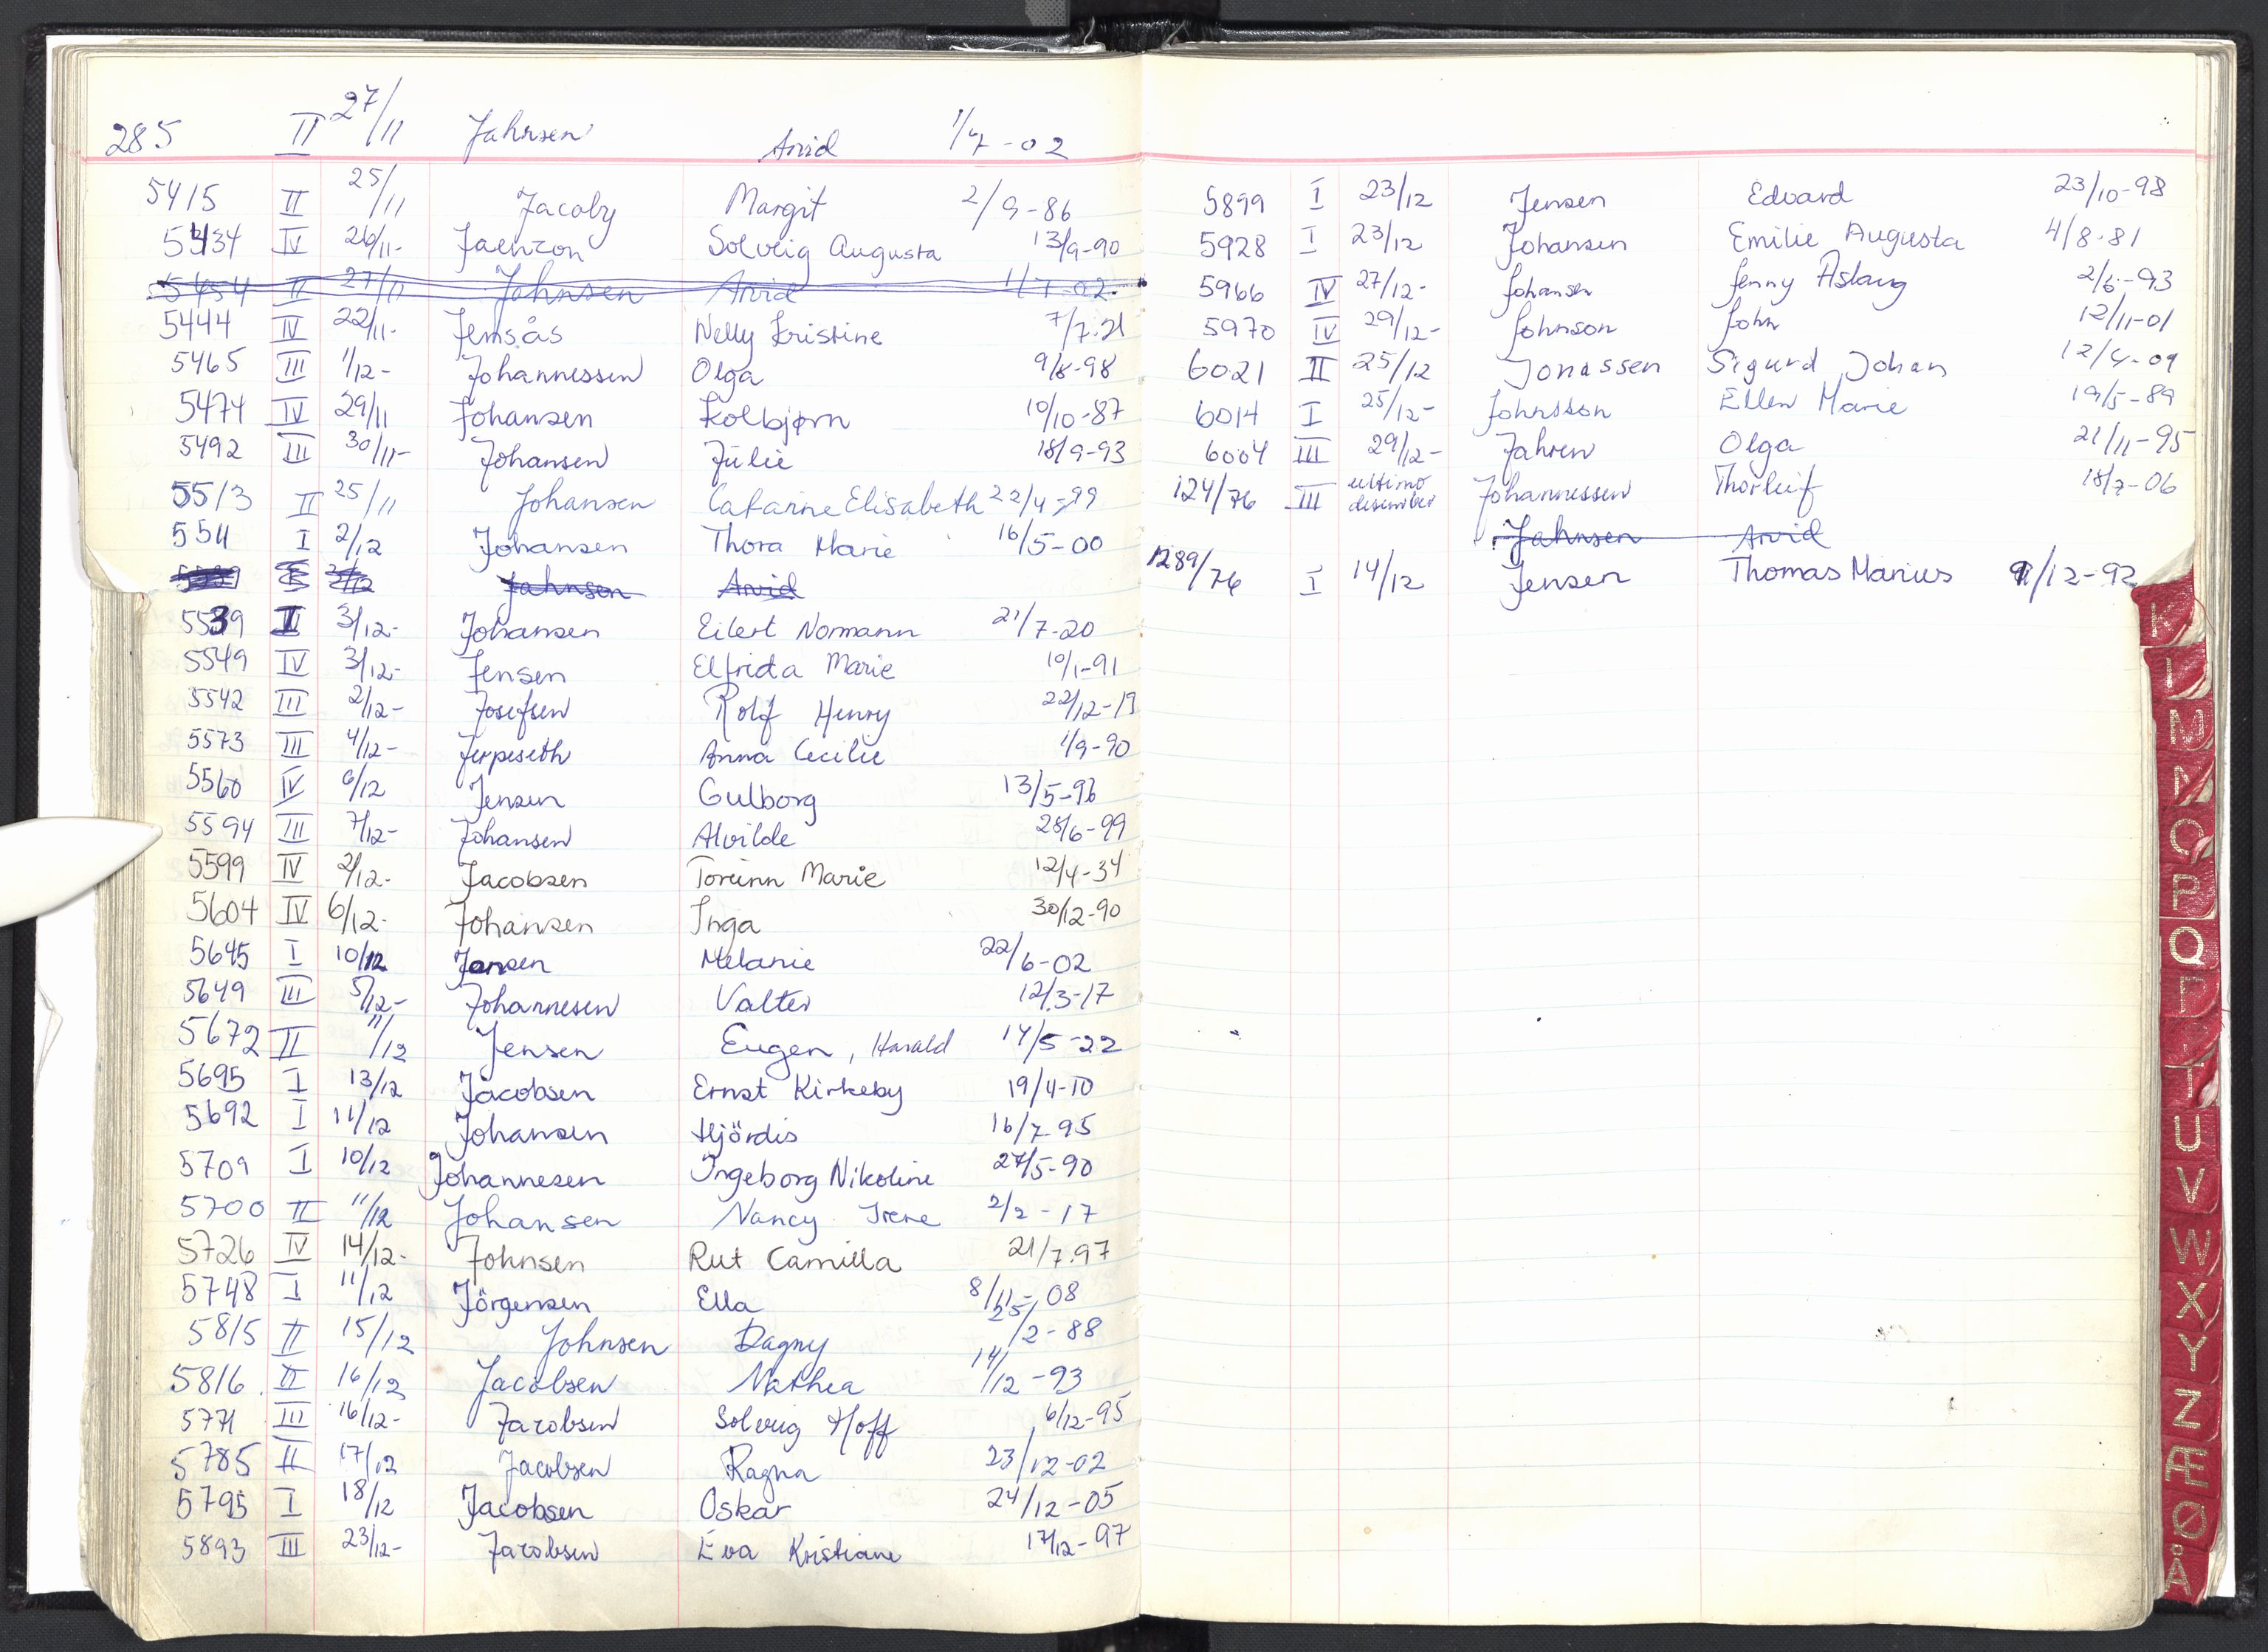 285 II 27/11 Jahnsen Arvid 1/7-02
5415 II 25/11 Jacoby Margit 2/9-86
5434 IV 26/11- Jaenzon Solveig Augusta 13/9-90
5454 II 27/11 Jahnsen Arvid 1/7-02
5444 IV 22/11- Jemsås Nelly Kristine 7/7-21
5465 III 1/12- Johannessen Olga 9/8-98
5474 IV 29/11 Johansen Kolbjørn 10/10-87
5492 III 30/11- Johansen Julie 18/9-93
5513 II 25/11 Johansen Catarine Elisabeth 22/4-99
5511 I 2/12 Johansen Thora Marie 16/5-00
Jahnsen Arvid
5539 I 3/12- Johansen Eilert Normann 21/7-20
5549 IV 3/12- Jensen Elfrida Marie 10/1-91
5542 III 2/12- Josefsen Rolf Henry 22/12-19
5573 III 4/12- Jerpeseth Anna Cecilie 1/9-90
5560 IV 6/12 Jensen Gulborg 13/5-96
5594 III 7/12- Johansen Alvilde 28/6-99
5599 IV 2/12- Jacobsen Toreinn Marie 12/4-34
5604 IV 6/12- Johansen Inga 30/12-90
5645 I 10/12 Jansen Melanie 22/6-02
5649 III 5/12- Johannesen Valter 12/3-17
5672 II 11/12 Jensen Eugen, Harald 14/5-22
5695 I 13/12 Jacobsen Ernst Kirkeby 19/4-10
5692 I 11/12 Johansen Hjördis 16/7-95
5709 I 10/12 Johannesen Ingeborg Nikoline 27/5-90
5700 II 11/12 Johansen Nancy Irene 2/2-17
5726 IV 14/12- Johnsen Rut Camilla 21/7.97
5748 I 11/12 Jörgensen Ella 8/11-08
5815 II 15/12 Johnsen Dagny 25/2-88
5816 II 16/12 Jacobsen Mathea 14/12-93
5771 III 16/12- Jacobsen Solveig Hoff 6/12-95
5785 II 17/12 Jacobsen Ragna 23/12-02
5795 I 18/12 Jacobsen Oskar 24/12-05
5893 III 23/12- Jacobsen Eva Kristiane 17/12-97
5899 I 23/12 Jensen Edvard 23/10-98
5928 I 23/12 Johansen Emilie Augusta 4/8-81
5966 IV 27/12- Johansen Jenny Aslaug 2/6-93
5970 IV 29/12- Johnson John 12/11-01
6021 II 25/12 Jonassen Sigurd Johan 12/4-09
6014 I 25/12- Johnsson Ellen Marie 19/5-89
6004 III 29/12- Jahren Olga 21/11-95
124/76 III ultimo desember Johannessen Thorleif 18/7-06
Jahnsen Arvid
1289/76 I 14/12 Jensen Thomas Marius /12-92
K
L
M
N
O
P
Q
R
T
U
V
W
X
Y
Z
Æ
Ø
Å